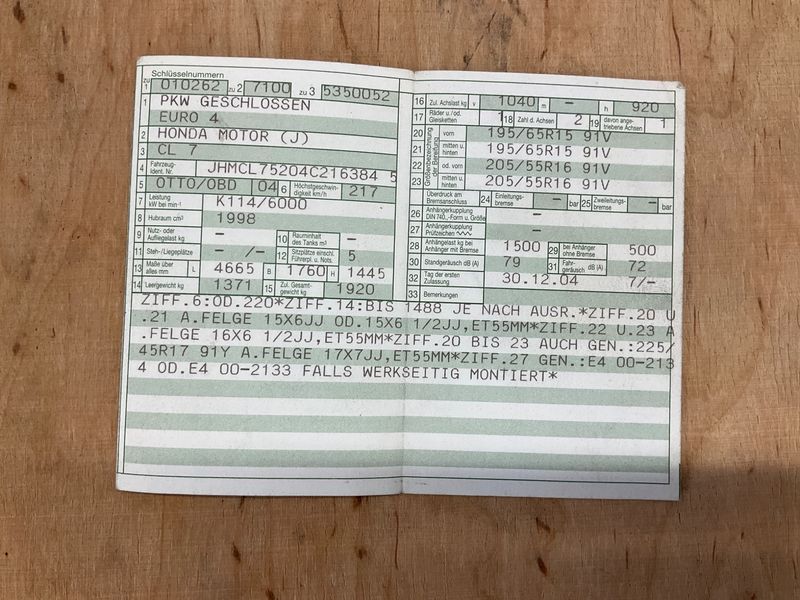 Schlüsselnummern
zu 1 010262 zu 2 7100 zu 3 5350052
1 PKW GESCHLOSSEN
EURO 4
2 HONDA MOTOR (J)
3 CL 7
4 Fahrzeug-Ident. Nr. JHMCL75204C216384 5
5 OTTO/OBD 04 6 Höchstgeschwindigkeit km/h 217
7 Leistung kW bei min⁻¹ K114/6000
8 Hubraum cm³ 1998
9 Nutz- oder Aufliegelast kg – 10 Rauminhalt des Tanks m³ –
11 Steh-/Liegeplätze – /– 12 Sitzplätze einschl. Führerpl. u. Nots. 5
13 Maße über alles mm L 4665 B 1760 H 1445
14 Leergewicht kg 1371 15 Zul. Gesamtgewicht kg 1920
16 Zul. Achslast kg v 1040 m – h 920
17 Räder u./od. Gleisketten 1 18 Zahl d. Achsen 2 19 davon angetriebene Achsen 1
Größenbezeichnung der Bereifung
20 vorn 195/65R15 91V
21 mitten u. hinten 195/65R15 91V
22 od. vorn 205/55R16 91V
23 mitten u. hinten 205/55R16 91V
Überdruck am Bremsanschluss 24 Einleitungsbremse – bar 25 Zweileitungsbremse – bar
26 Anhängerkupplung DIN 740..-Form u. Größe –
27 Anhängerkupplung Prüfzeichen –
28 Anhängelast kg bei Anhänger mit Bremse 1500 29 bei Anhänger ohne Bremse 500
30 Standgeräusch dB (A) 79 31 Fahrgeräusch dB (A) 72
32 Tag der ersten Zulassung 30.12.04 7/–
33 Bemerkungen
ZIFF.6:OD.220*ZIFF.14:BIS 1488 JE NACH AUSR.*ZIFF.20 U
.21 A.FELGE 15X6JJ OD.15X6 1/2JJ,ET55MM*ZIFF.22 U.23 A
.FELGE 16X6 1/2JJ,ET55MM*ZIFF.20 BIS 23 AUCH GEN.:225/
45R17 91Y A.FELGE 17X7JJ,ET55MM*ZIFF.27 GEN.:E4 00-213
4 OD.E4 00-2133 FALLS WERKSEITIG MONTIERT*